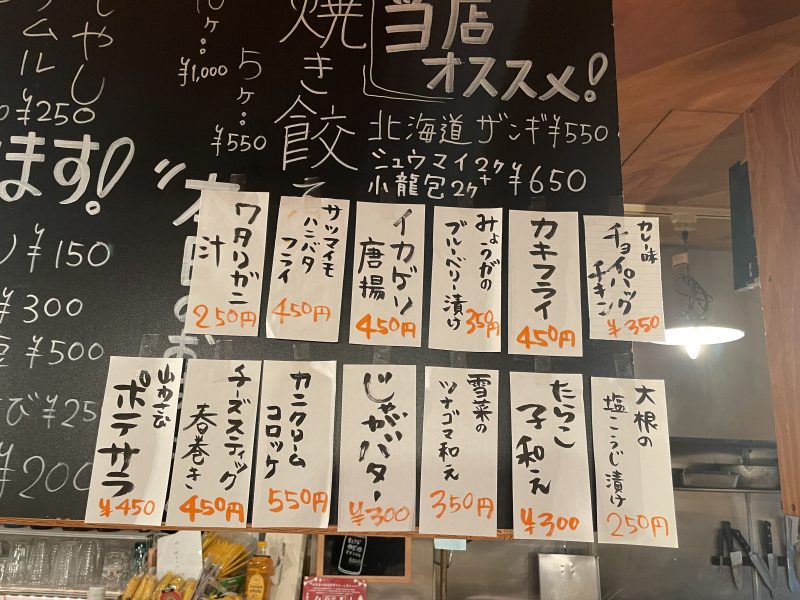 当店
オススメ!
北海道 ザンギ ¥550
シュウマイ2ケ+
小龍包2ケ
¥650
焼き餃
¥1,000
5ケ:
¥550
¥250
ます!
¥150
¥300
¥500
¥25
¥200
カレー味
チョイパック
チキン
¥350
カキフライ
450円
みょうがの
ブルーベリー漬け
350円
イカゲソ
唐揚
450円
サツマイモ
ハニバタ
フライ
450円
ワタリガニ
汁
250円
大根の
塩こうじ漬け
250円
たらこ
子和え
¥300
雪菜の
ツナゴマ和え
350円
じゃがバター
¥300
カニクリーム
コロッケ
550円
チーズスティック
春巻き
450円
山わさび
ポテサラ
¥450